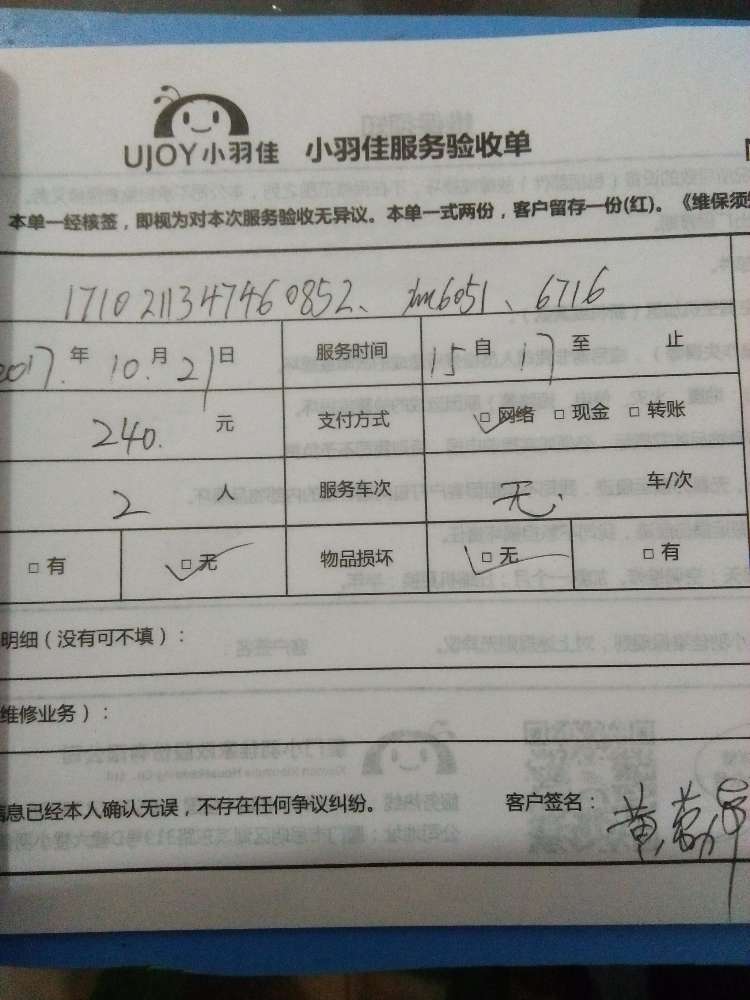 UJOY小羽佳 小羽佳服务验收单
本单一经核签，即视为对本次服务验收无异议。本单一式两份，客户留存一份(红)。《维保须
1710211347460852、xm6051、6716
2017.年 10.月21日 服务时间 15自 17至 止
240.元 支付方式 □网络 □现金 □转账
2人 服务车次 无. 车/次
□有 □无 物品损坏 □无 □有
明细（没有可不填）：
维修业务）：
信息已经本人确认无误，不存在任何争议纠纷。 客户签名：黄